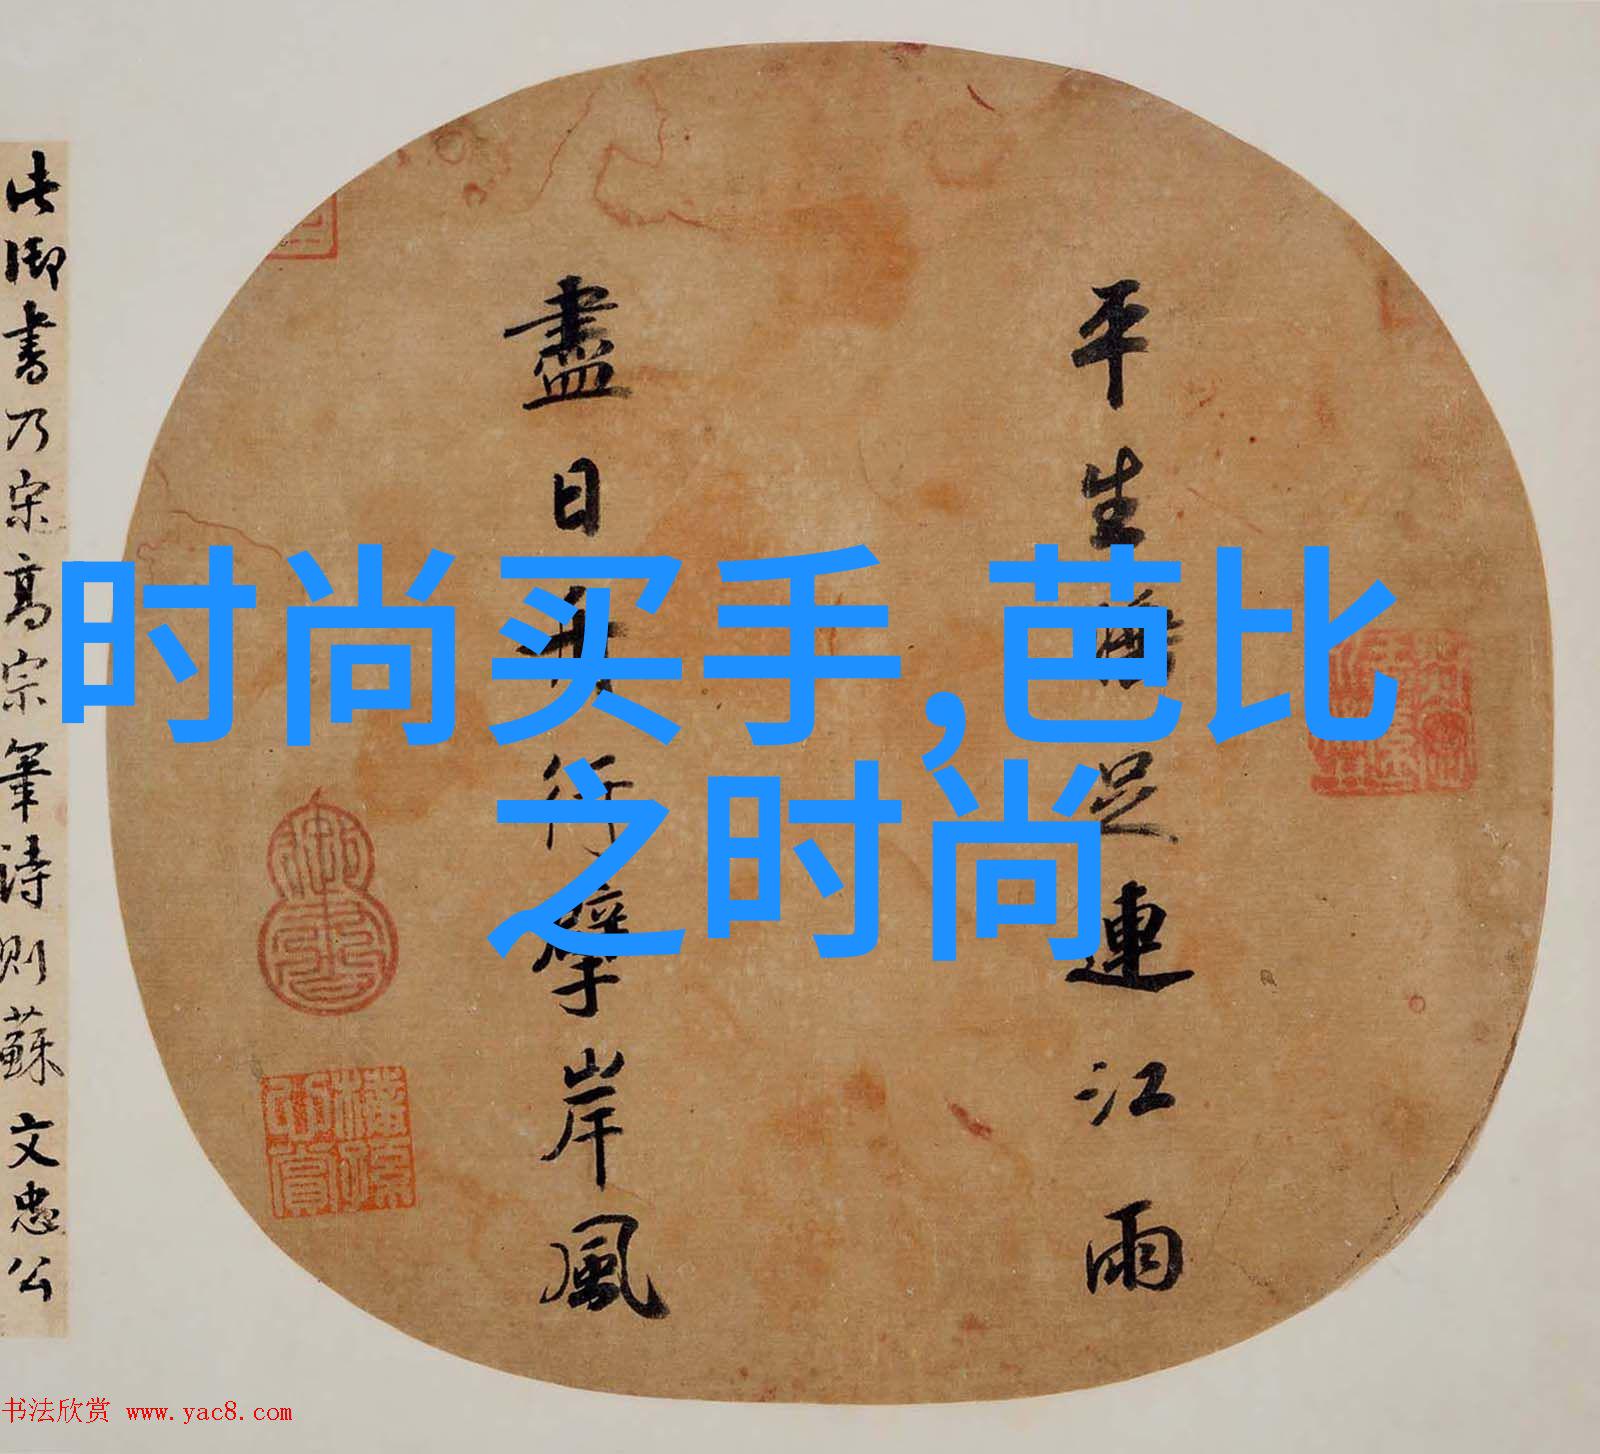 时尚买手,芭比
之时尚
平生足連江雨
盡日舟行擘岸風
此御書乃宋高宗筆詩則蘇文忠公
书法欣赏 www.yac8.com